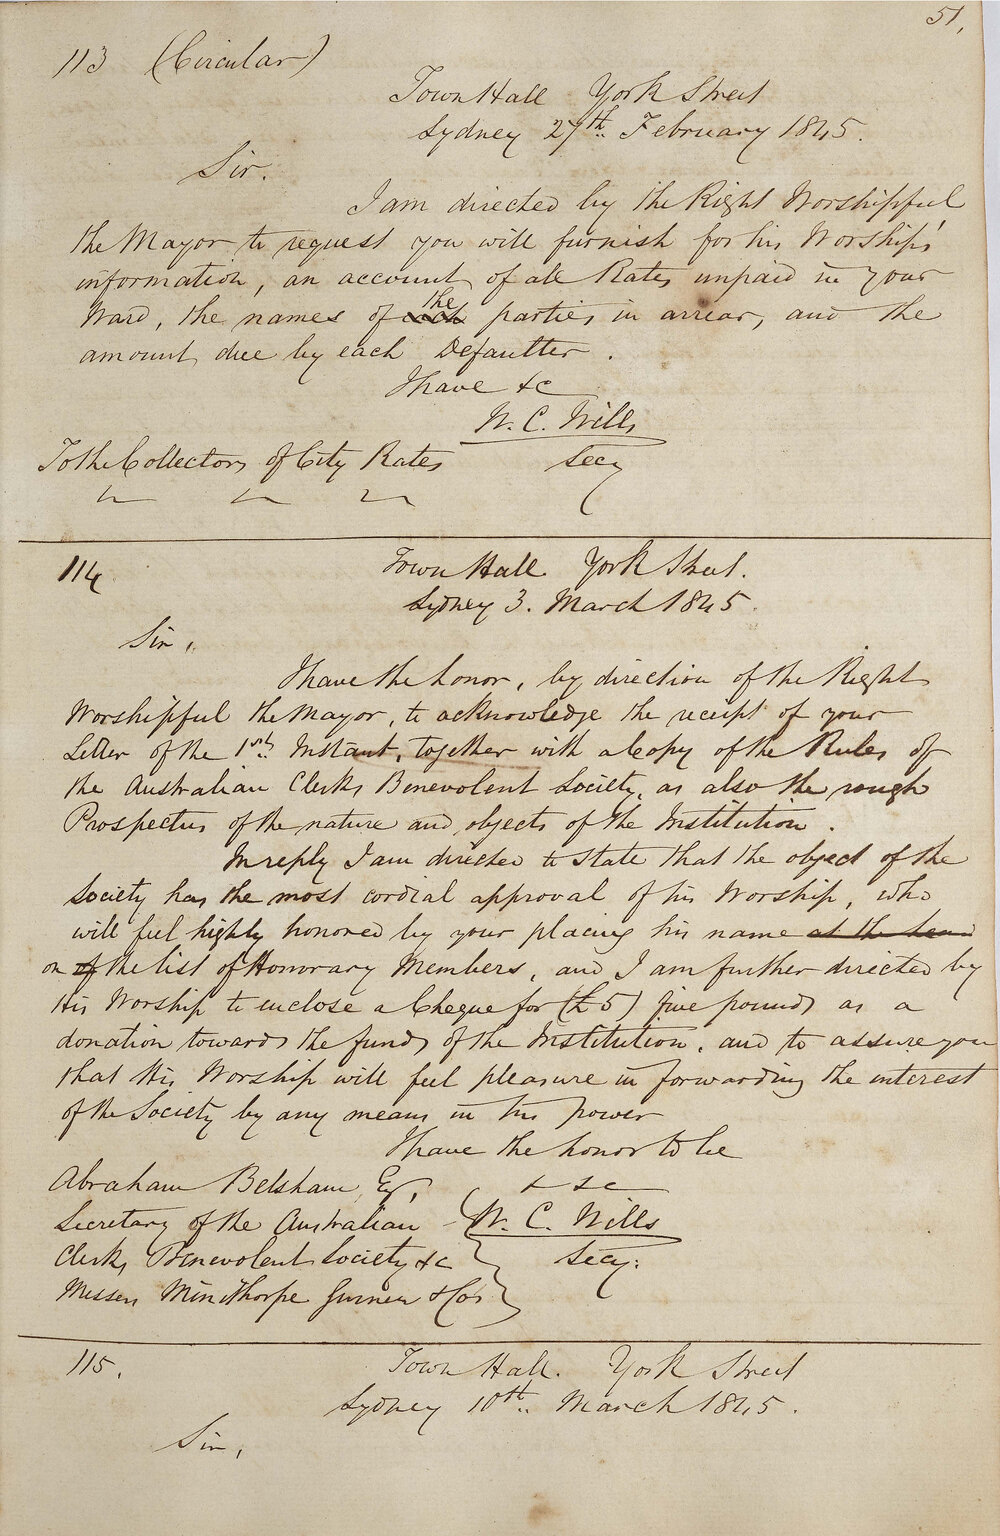 51.
113 (Circular)
Town Hall York Street
Sydney 27th. February 1845.
Sir.
I am directed by the Right Worshipful
the Mayor to request you will furnish for his Worships'
information, an account of all Rates unpaid in your
Ward, the names of each the parties in arrear, and the
amount due by each Defaulter.
I have &c
W. C. Wills
Secy
To the Collectors of City Rates
114
Town Hall. York Street.
Sydney 3. March 1845.
Sir,
I have the honor, by direction of the Right
Worshipful the Mayor, to acknowledge the receipt of your
Letter of the 1st. Instant, together with a Copy of the Rules of
the Australian Clerks Benevolent Society, as also the rough
Prospectus of the nature and objects of the Institution.
In reply I am directed to state that the object of the
Society has the most cordial approval of his Worship, who
will feel highly honored by your placing his name at the head
on of the list of Honorary Members, and I am further directed by
His Worship to enclose a Cheque for (£5) five pounds as a
donation towards the funds of the Institution, and to assure you
that His Worship will feel pleasure in forwarding the interest
of the Society by any means in his power
I have the honor to be
& &c
Abraham Belsham, Esq,
Secretary of the Australian
W. C. Wills
Clerks Benevolent Society &c
Secy:
Messrs Minithorpe &Cos
115.
Town Hall. York Street
Sydney 10th.. March 1845.
Sir,